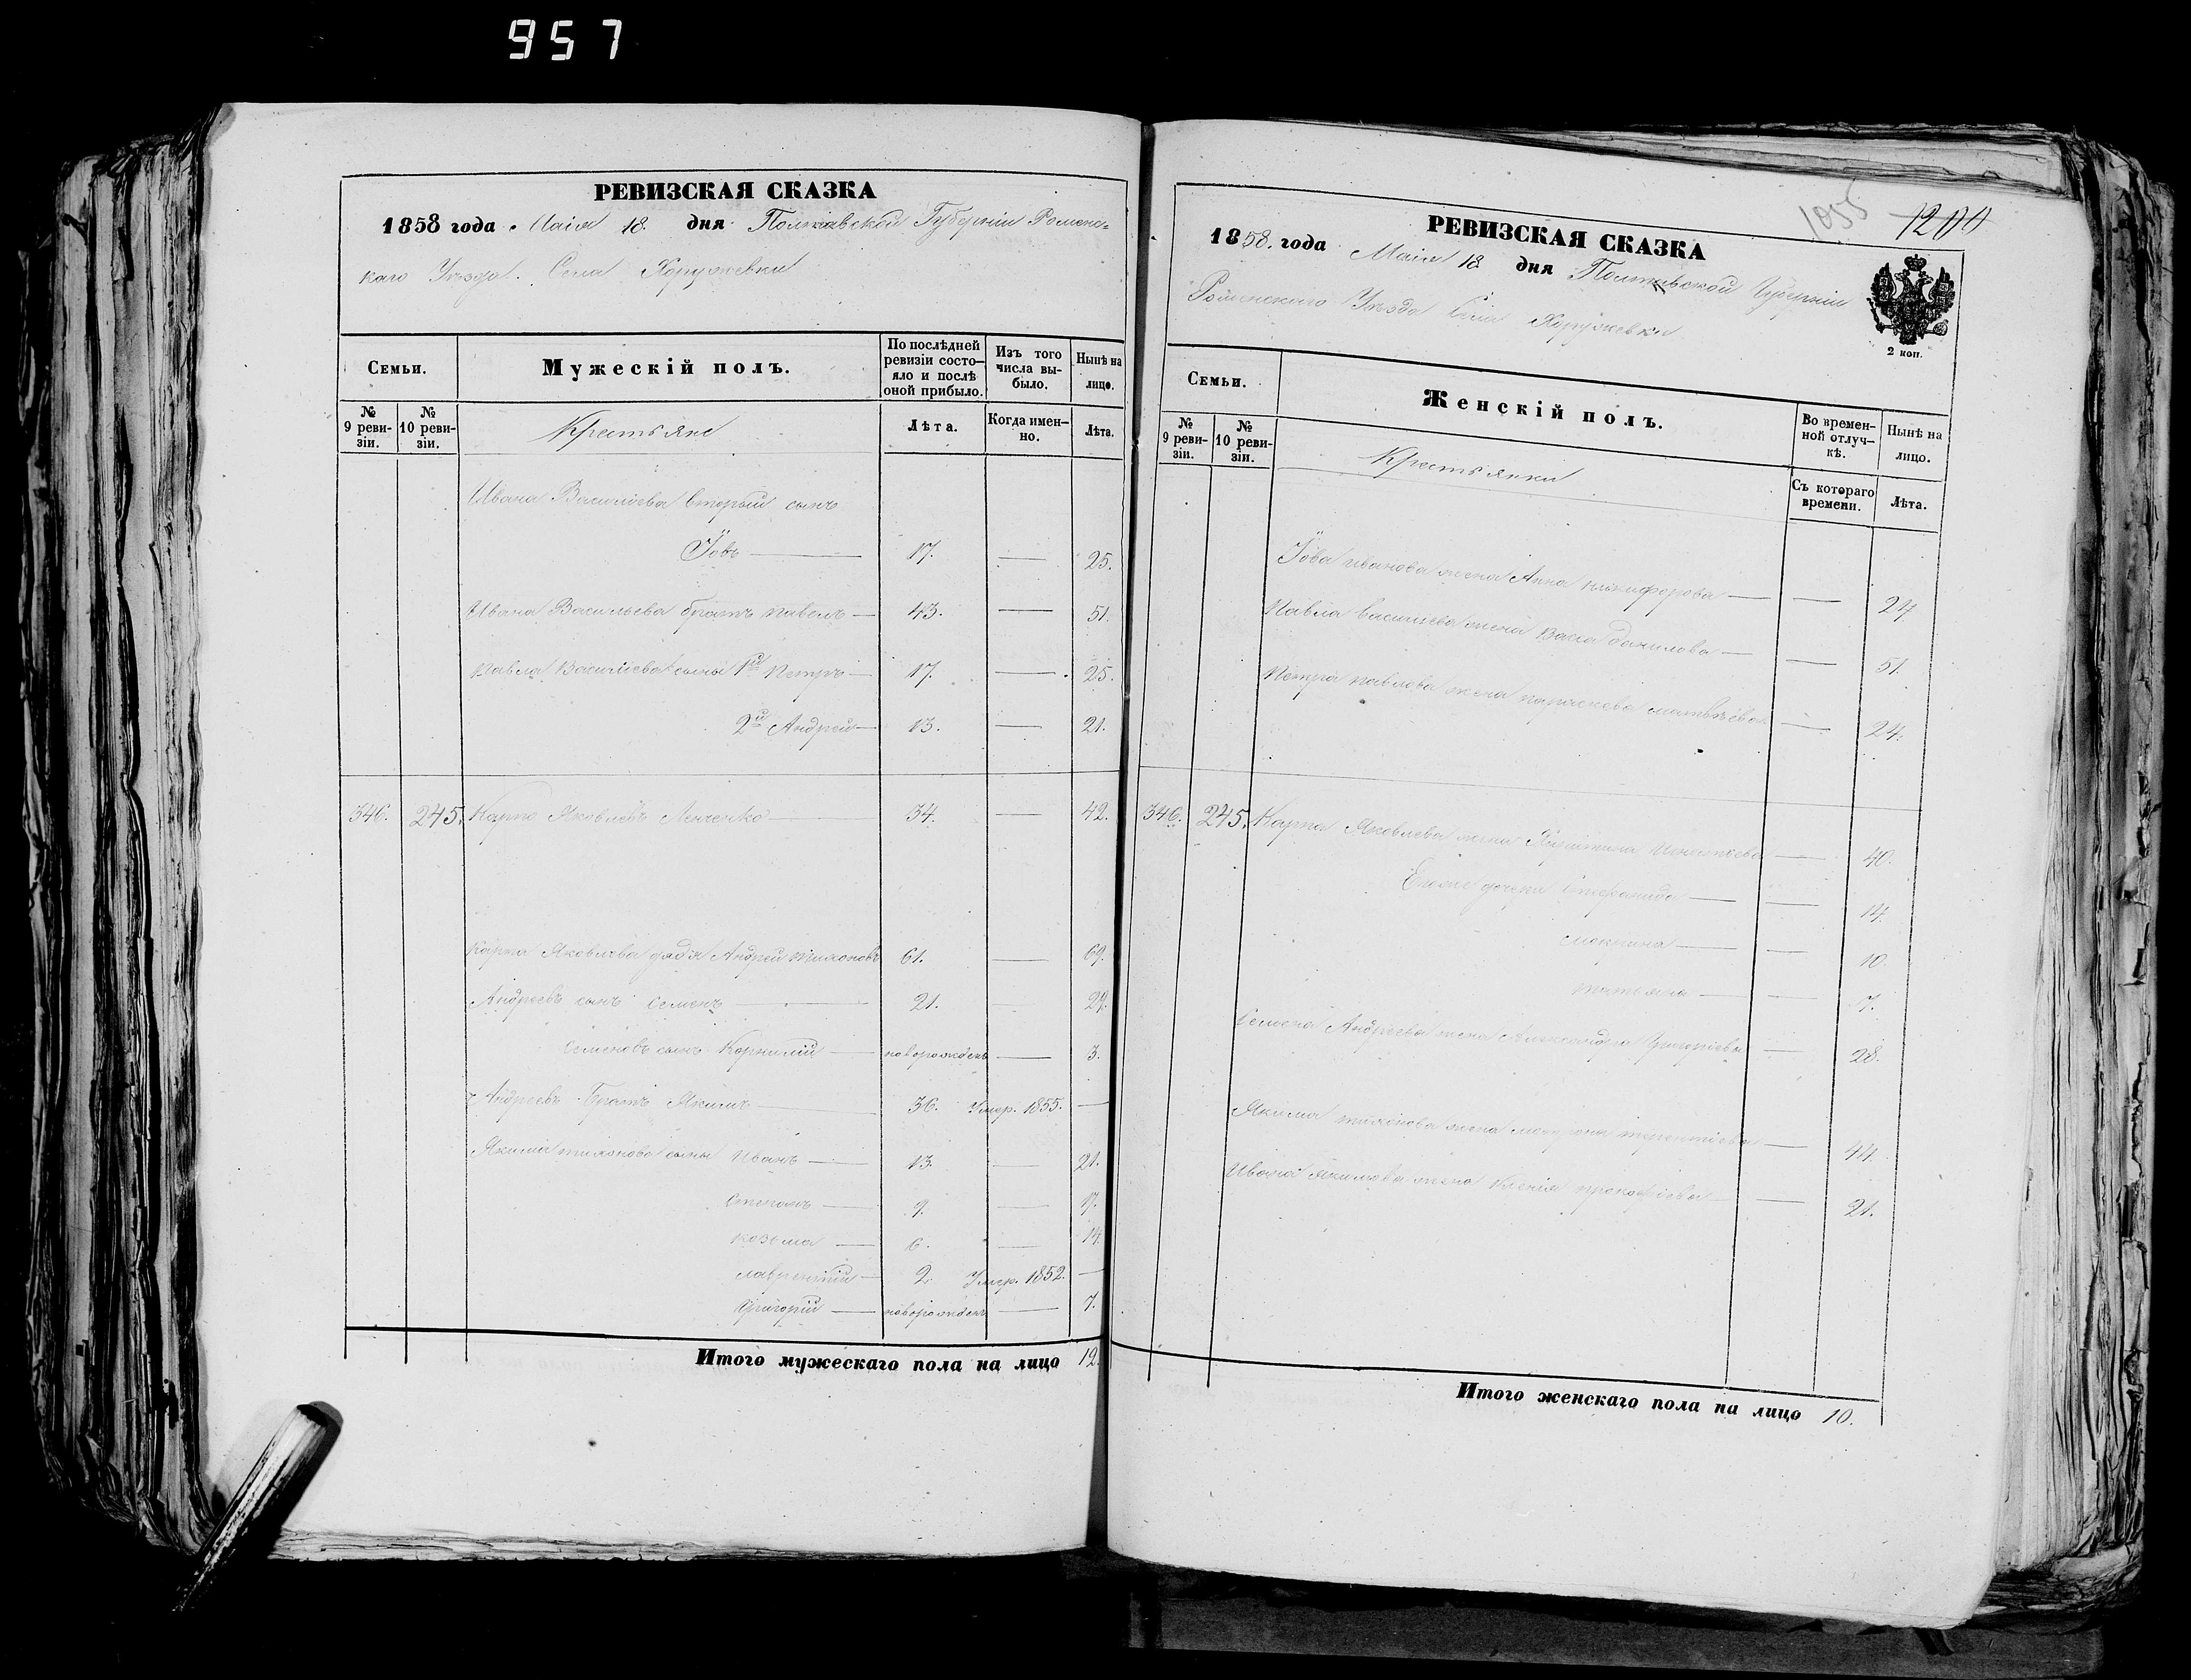 957
РЕВИЗСКАЯ СКАЗКА
1858 года Маія 18 дня Полтавской Губерніи Роменс-
каго Уезда Села Хоружевки
Семьи.
Мужескій полъ.
По послѣдней ревизіи состо-яло и послѣ оной прибыло.
Изъ того числа вы-было.
Нынѣ на лицо.
№ 9 реви-зіи.
№ 10 реви-зіи.
Крестьяне
Лѣта.
Когда имен-но.
Лѣта.
Ивана Василіева вторый сынъ
Іовъ — 17. — 25.
Ивана Васильева братъ Павелъ — 43. — 51.
Павла Василіева сыны 1й Петръ — 17. — 25.
2й Андрей — 13. — 21.
346. 245. Карпо Яковлевъ — 34. — 42.
Карпа Яковлева дядя Андрей Тихоновъ 61. — 69.
Андреевъ сынъ Семенъ — 21. — 29.
Семеновъ сынъ Корнилій — новорожденъ — 3.
Андреевъ Братъ Якимъ — 36. Умер. 1855. —
Якима Тихонова сыны Иванъ — 13. — 21.
Степанъ — 9. — 17.
Козьма — 6. — 14.
Лаврентій — 2. Умер. 1852. —
Григорій — новорожденъ — 7.
Итого мужескаго пола на лицо 12.
1055
1200
РЕВИЗСКАЯ СКАЗКА
1858. года Маія 18 дня Полтавской Губерніи
Роменского Уезда Села Хоружевки
2 коп.
Семьи.
Женскій полъ.
Во времен-ной отлуч-кѣ.
Нынѣ на лицо.
№ 9 реви-зіи.
№ 10 реви-зіи.
Крестьянки
Съ котораго времени.
Лѣта.
Іова Иванова жена Анна Никифорова — — 24
Павла Василіева жена Данилова — — 51.
Петра Павлова жена Параскева Матвѣева — 24.
346. 245. Карпа Яковлева жена Христина — 40.
дочери Стефанида — — 14.
— — 10.
Татьяна — — 7.
Семена Андреева жена Александра Григоріева — 28.
Якима Тихонова жена Терентіева — 44.
Ивана Якимова жена Ксенія Прокофіева — — 21.
Итого женскаго пола на лицо 10.